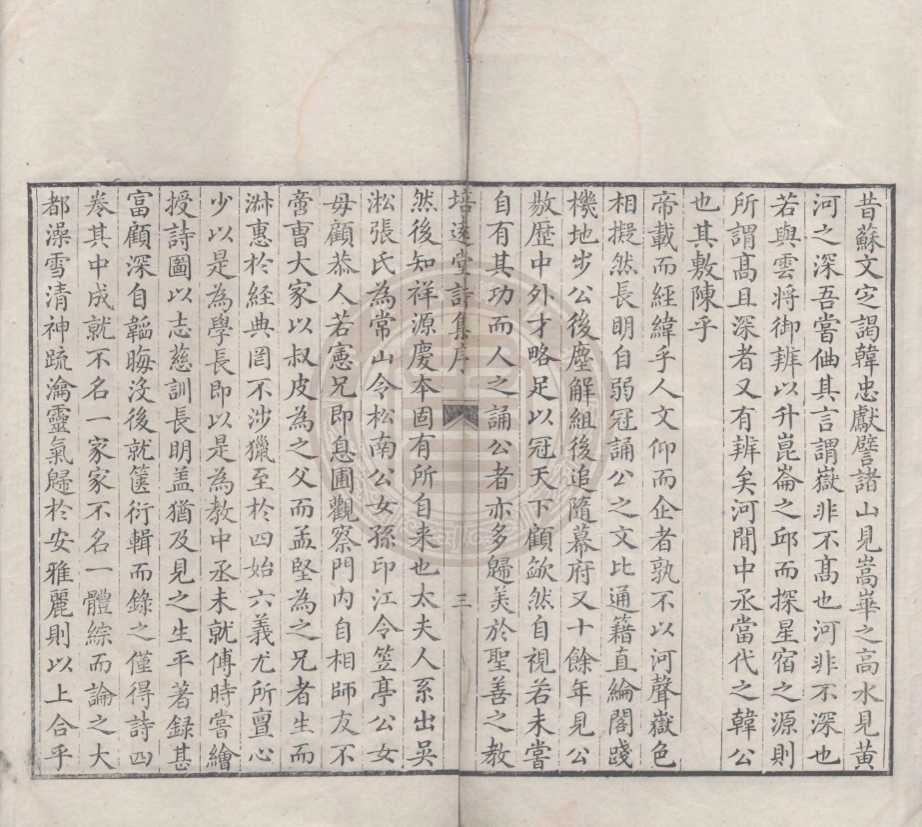 昔蘇文定謁韓忠獻譬諸山見嵩崋之高水見黃
河之深吾嘗伷其言謂嶽非不髙也河非不深也
若與雲将御辨以升崑崙之邱而探星宿之源則
所謂髙且深者又有辨矣河閒中丞當代之韓公
也其敷陳乎
帝載而經緯乎人文仰而企者孰不以河聲嶽色
相擬然長明自弱冠誦公之文比通籍直綸閣踐
機地步公後塵解組後追隨幕府又十餘年見公
敭歴中外才略足以冠天下顧歛然自視若未嘗
自有其功而人之誦公者亦多歸美於聖善之教
培遠堂詩集序
三
然後知祥源慶本固有所自来也太夫人系出吳
淞張氏為常山令松南公女孫印江令笠亭公女
毋顧恭人若憲兄即息圃觀察門内自相師友不
啻曺大家以叔皮為之父而孟堅為之兄者生而
淋惠於經典罔不涉獵至於四始六義尤所亶心
少以是為學長即以是為教中丞未就傅時嘗繪
授詩圖以志慈訓長明盖猶及見之生平著録甚
富顧深自韜晦没後就箧衍輯而錄之僅得詩四
巻其中成就不名一家家不名一體綜而論之大
都澡雪清神疏瀹靈氣歸於安雅麗則以上合乎